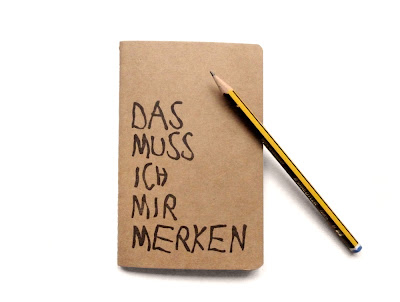 DAS
MUSS
ICH
MIR
MERKEN